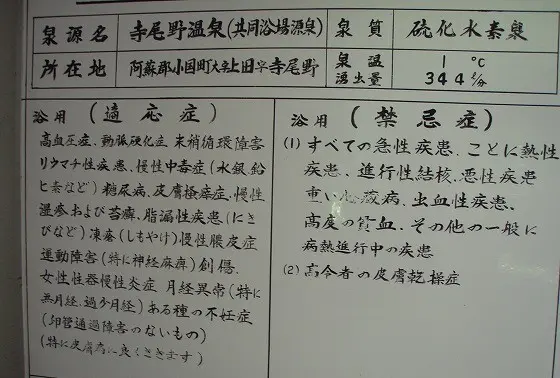 泉源名 寺尾野温泉(共同浴場源泉) 泉質 硫化水素泉
所在地 阿蘇郡小国町大字上田字寺尾野 泉温 1 ℃
湧出量 344ℓ/分
浴用 (適応症)
高血圧症、動脈硬化症 末梢循環障害
リウマチ性疾患、慢性中毒症(水銀、鉛
ヒ素など)糖尿病、皮膚掻痒症、慢性
湿疹および苔癬、脂漏性疾患(にき
びなど)凍瘡(しもやけ)慢性膿皮症
運動障害(特に神経麻痺)創傷、
女性性器慢性炎症 月経異常(特に
無月経、過少月経)ある種の不妊症
(卵管通過障害のないもの)
(特に皮膚病に良くききます)
浴用 (禁忌症)
(1) すべての急性疾患、ことに熱性
疾患、進行性結核、悪性疾患
重い心臓病、出血性疾患、
高度の貧血、その他の一般に
病熱進行中の疾患
(2) 高令者の皮膚乾燥症